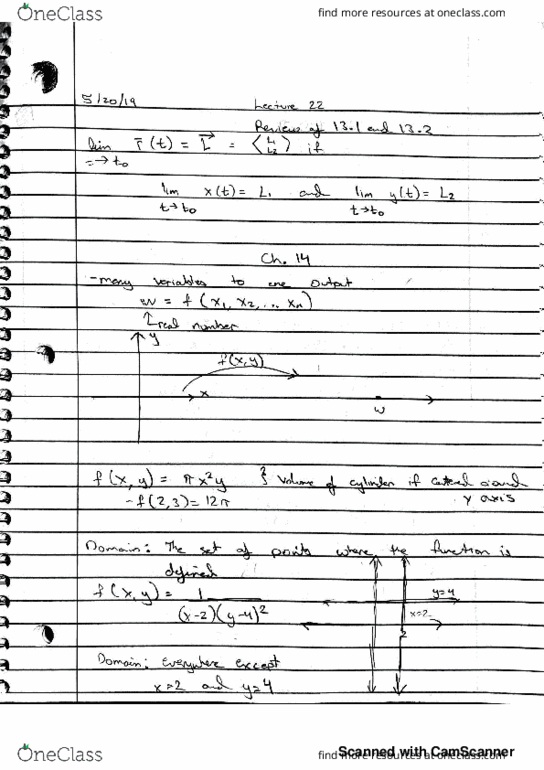 OneClass
find more resources at oneclass.com
5/20/19 Lecture 22
Review of 13.1 and 13.2
lim r̄(t) = L⃗ = ⟨L₁ L₂⟩ if
=→t₀
lim x(t) = L₁ and lim y(t) = L₂
t→t₀ t→t₀
Ch. 14
-many variables to one output
w = f(x₁, x₂, ... xₙ)
real number
y
f(x,y)
x
w
f(x,y) = πx²y } Volume of cylinder if centered around
-f(2,3)=12π y axis
Domain: The set of points where the function is
defined
f(x,y) = 1
(x-2)(y-4)²
y=4
x=2
2
Domain: everywhere except
x=2 and y=4
OneClass
find more resources at oneclass.com
Scanned with CamScanner